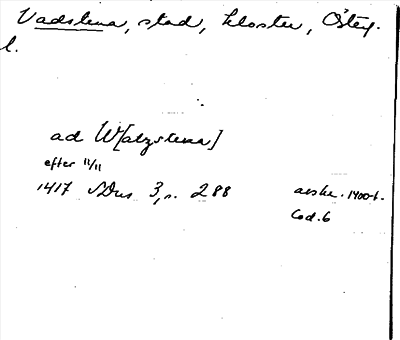 Vadstena, stad, kloster, Österg.
l.
ad W[atzstena]
efter 11/11
1417 SDns 3, s. 288 avskr. 1400-t.
Cod. 6